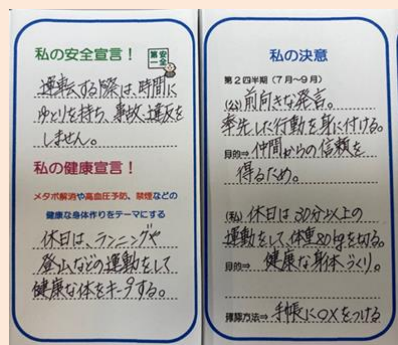 私の安全宣言！
安全
第一
運転する際は、時間に
ゆとりを持ち、事故、違反を
しません。
私の健康宣言！
メタボ解消や高血圧予防、禁煙などの
健康な身体作りをテーマにする
休日は、ランニングや
登山などの運動をして
健康な体をキープする。
私の決意
第２四半期（７月～９月）
(公) 前向きな発言。
率先した行動を身に付ける。
目的⇒ 仲間からの信頼を
得るため。
(私) 休日は30分以上の
運動をして、体重80kgを切る。
目的⇒ 健康な身体づくり。
掃除方法⇒ 手帳に○×をつける